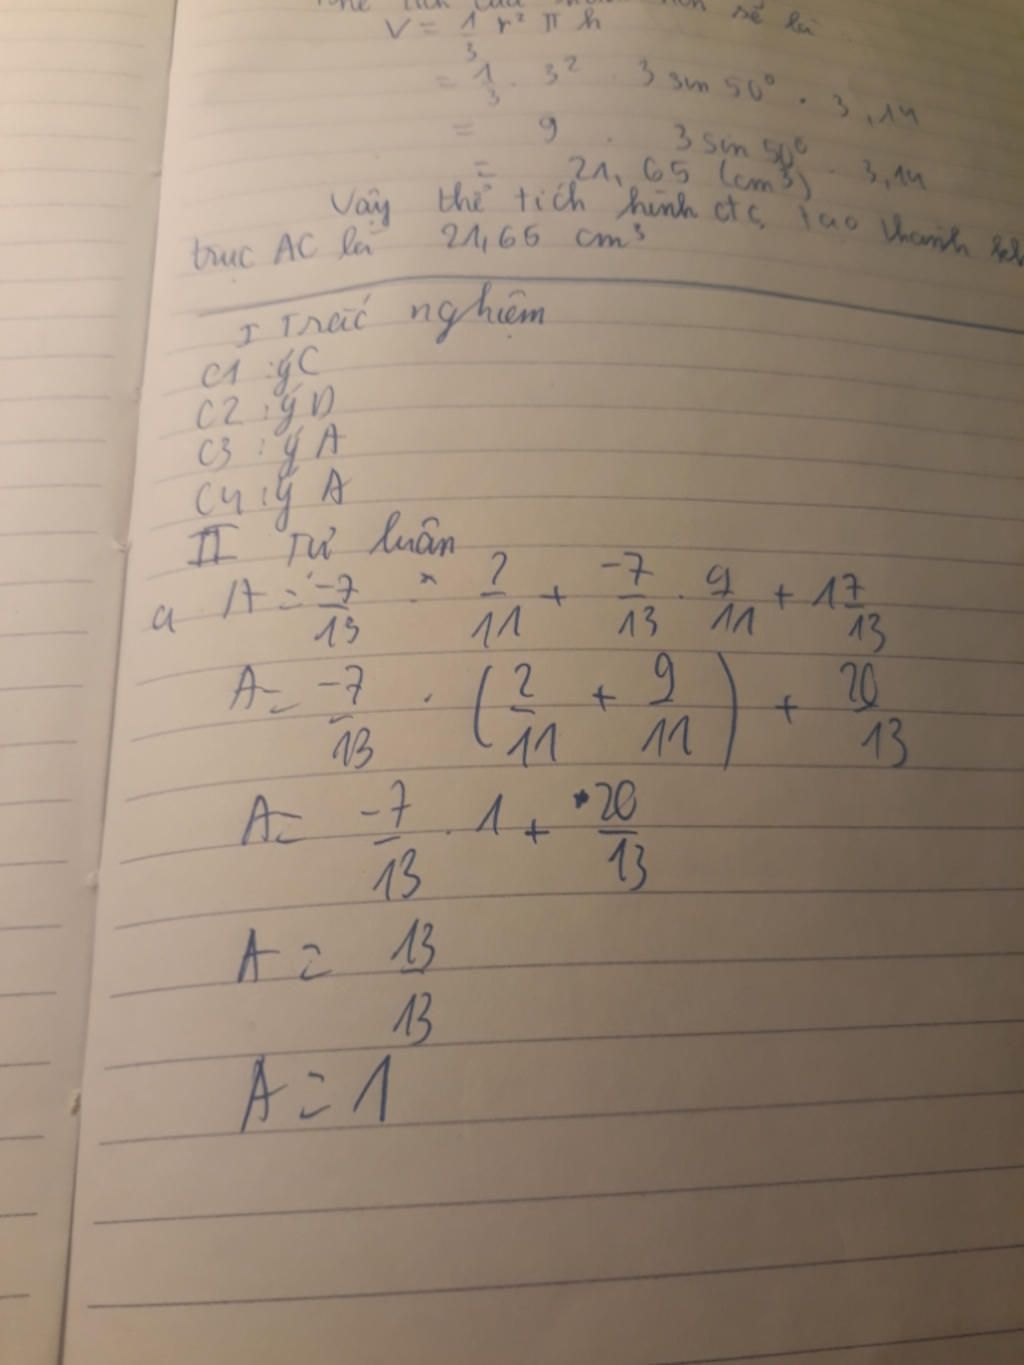 sẽ là
V = 1/3 r² π h
= 1/3 . 3² . 3 sin 50° . 3,14
= 9 . 3 sin 50° . 3,14
= 21,65 (cm³)
Vậy thể tích hình đtc tạo thành
trục AC là 21,65 cm³
I Trắc nghiệm
C1 : ý C
C2 : ý D
C3 : ý A
C4 : ý A
II Tự luận
a A = -7/13 . 2/11 + -7/13 . 9/11 + 1 7/13
A = -7/13 . (2/11 + 9/11) + 20/13
A = -7/13 . 1 + 20/13
A = 13/13
A = 1